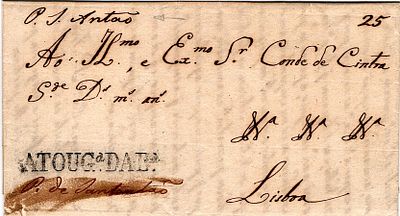 P. S. Antão 25
Ao Il.mo, e Ex.mo Sr Conde de Cintra
S.de D.s m.s an.s
N.a N.a N.a
ATOUG.a DA B.a
P. de
Lisboa